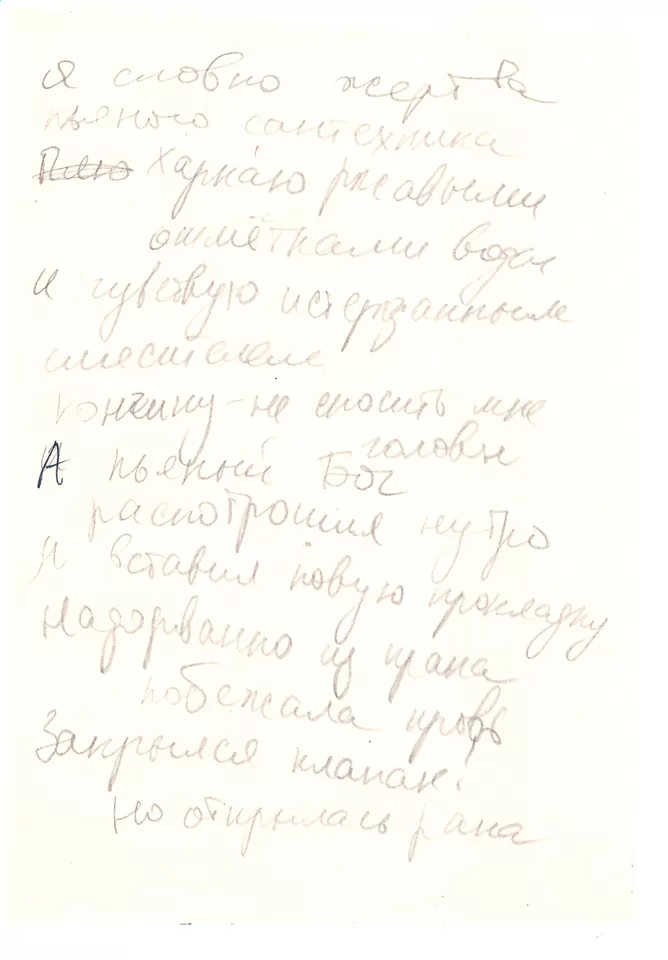 Я словно жертва
пьяного сантехника
Плюю Харкаю ржавыми
ошмётками воды
И чувствую истерзанным
смесителем
Кончину - не сносить мне
головы
А пьяный Бог
распотрошил нутро
И вставил новую прокладку
Надорванно из крана
побежала кровь
Закрылся клапан!
Но открылась рана